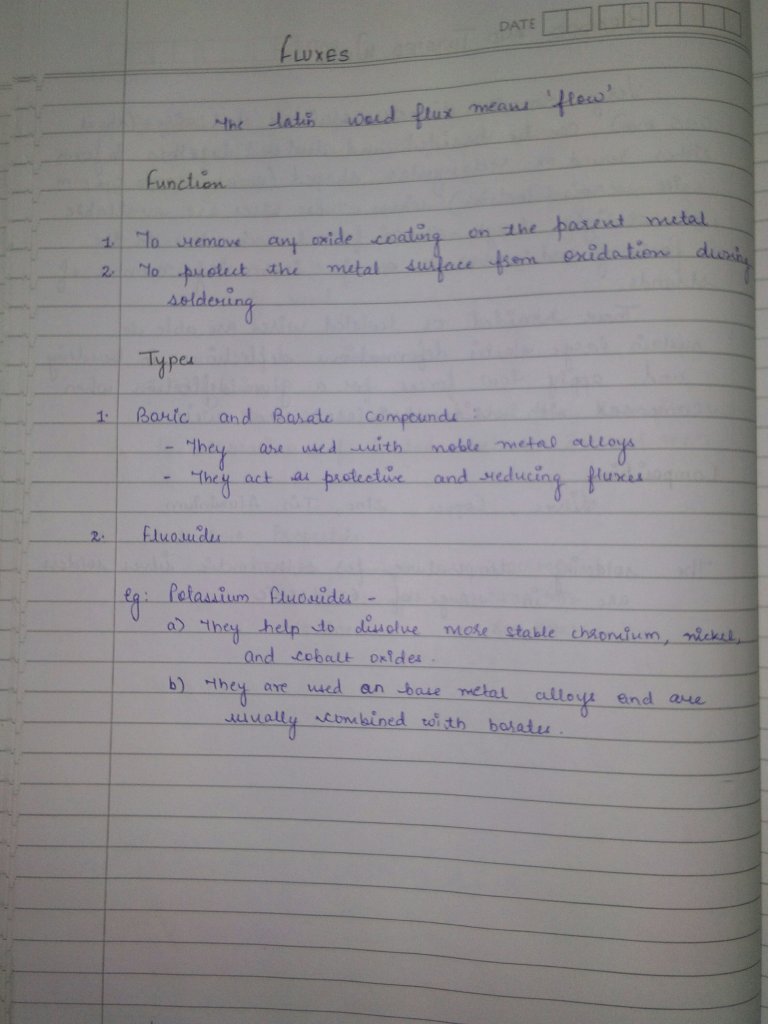 DATE
FLUXES
The latin word flux means 'flow'
Function
1. To remove any oxide coating on the parent metal
2. To protect the metal surface from oxidation during
soldering
Types
1. Boric and Borate compounds:
- They are used with noble metal alloys
- They act as protective and reducing fluxes
2. Fluorides
eg: Potassium fluorides -
a) They help to dissolve more stable chromium, nickel,
and cobalt oxides.
b) They are used on base metal alloys and are
usually combined with borates.